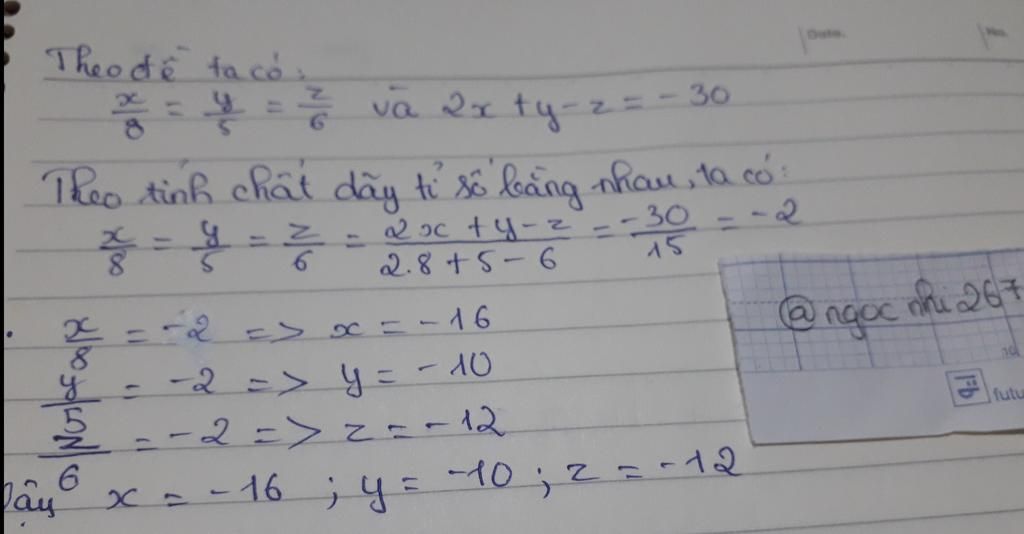 Date. No.
Theo đề ta có:
x/8 = y/5 = z/6 và 2x + y - z = -30
Theo tính chất dãy tỉ số bằng nhau, ta có:
x/8 = y/5 = z/6 = (2x + y - z)/(2.8 + 5 - 6) = -30/15 = -2
x/8 = -2 => x = -16
y/5 = -2 => y = -10
z/6 = -2 => z = -12
Vậy x = -16 ; y = -10 ; z = -12
@ngocnhi267
futu